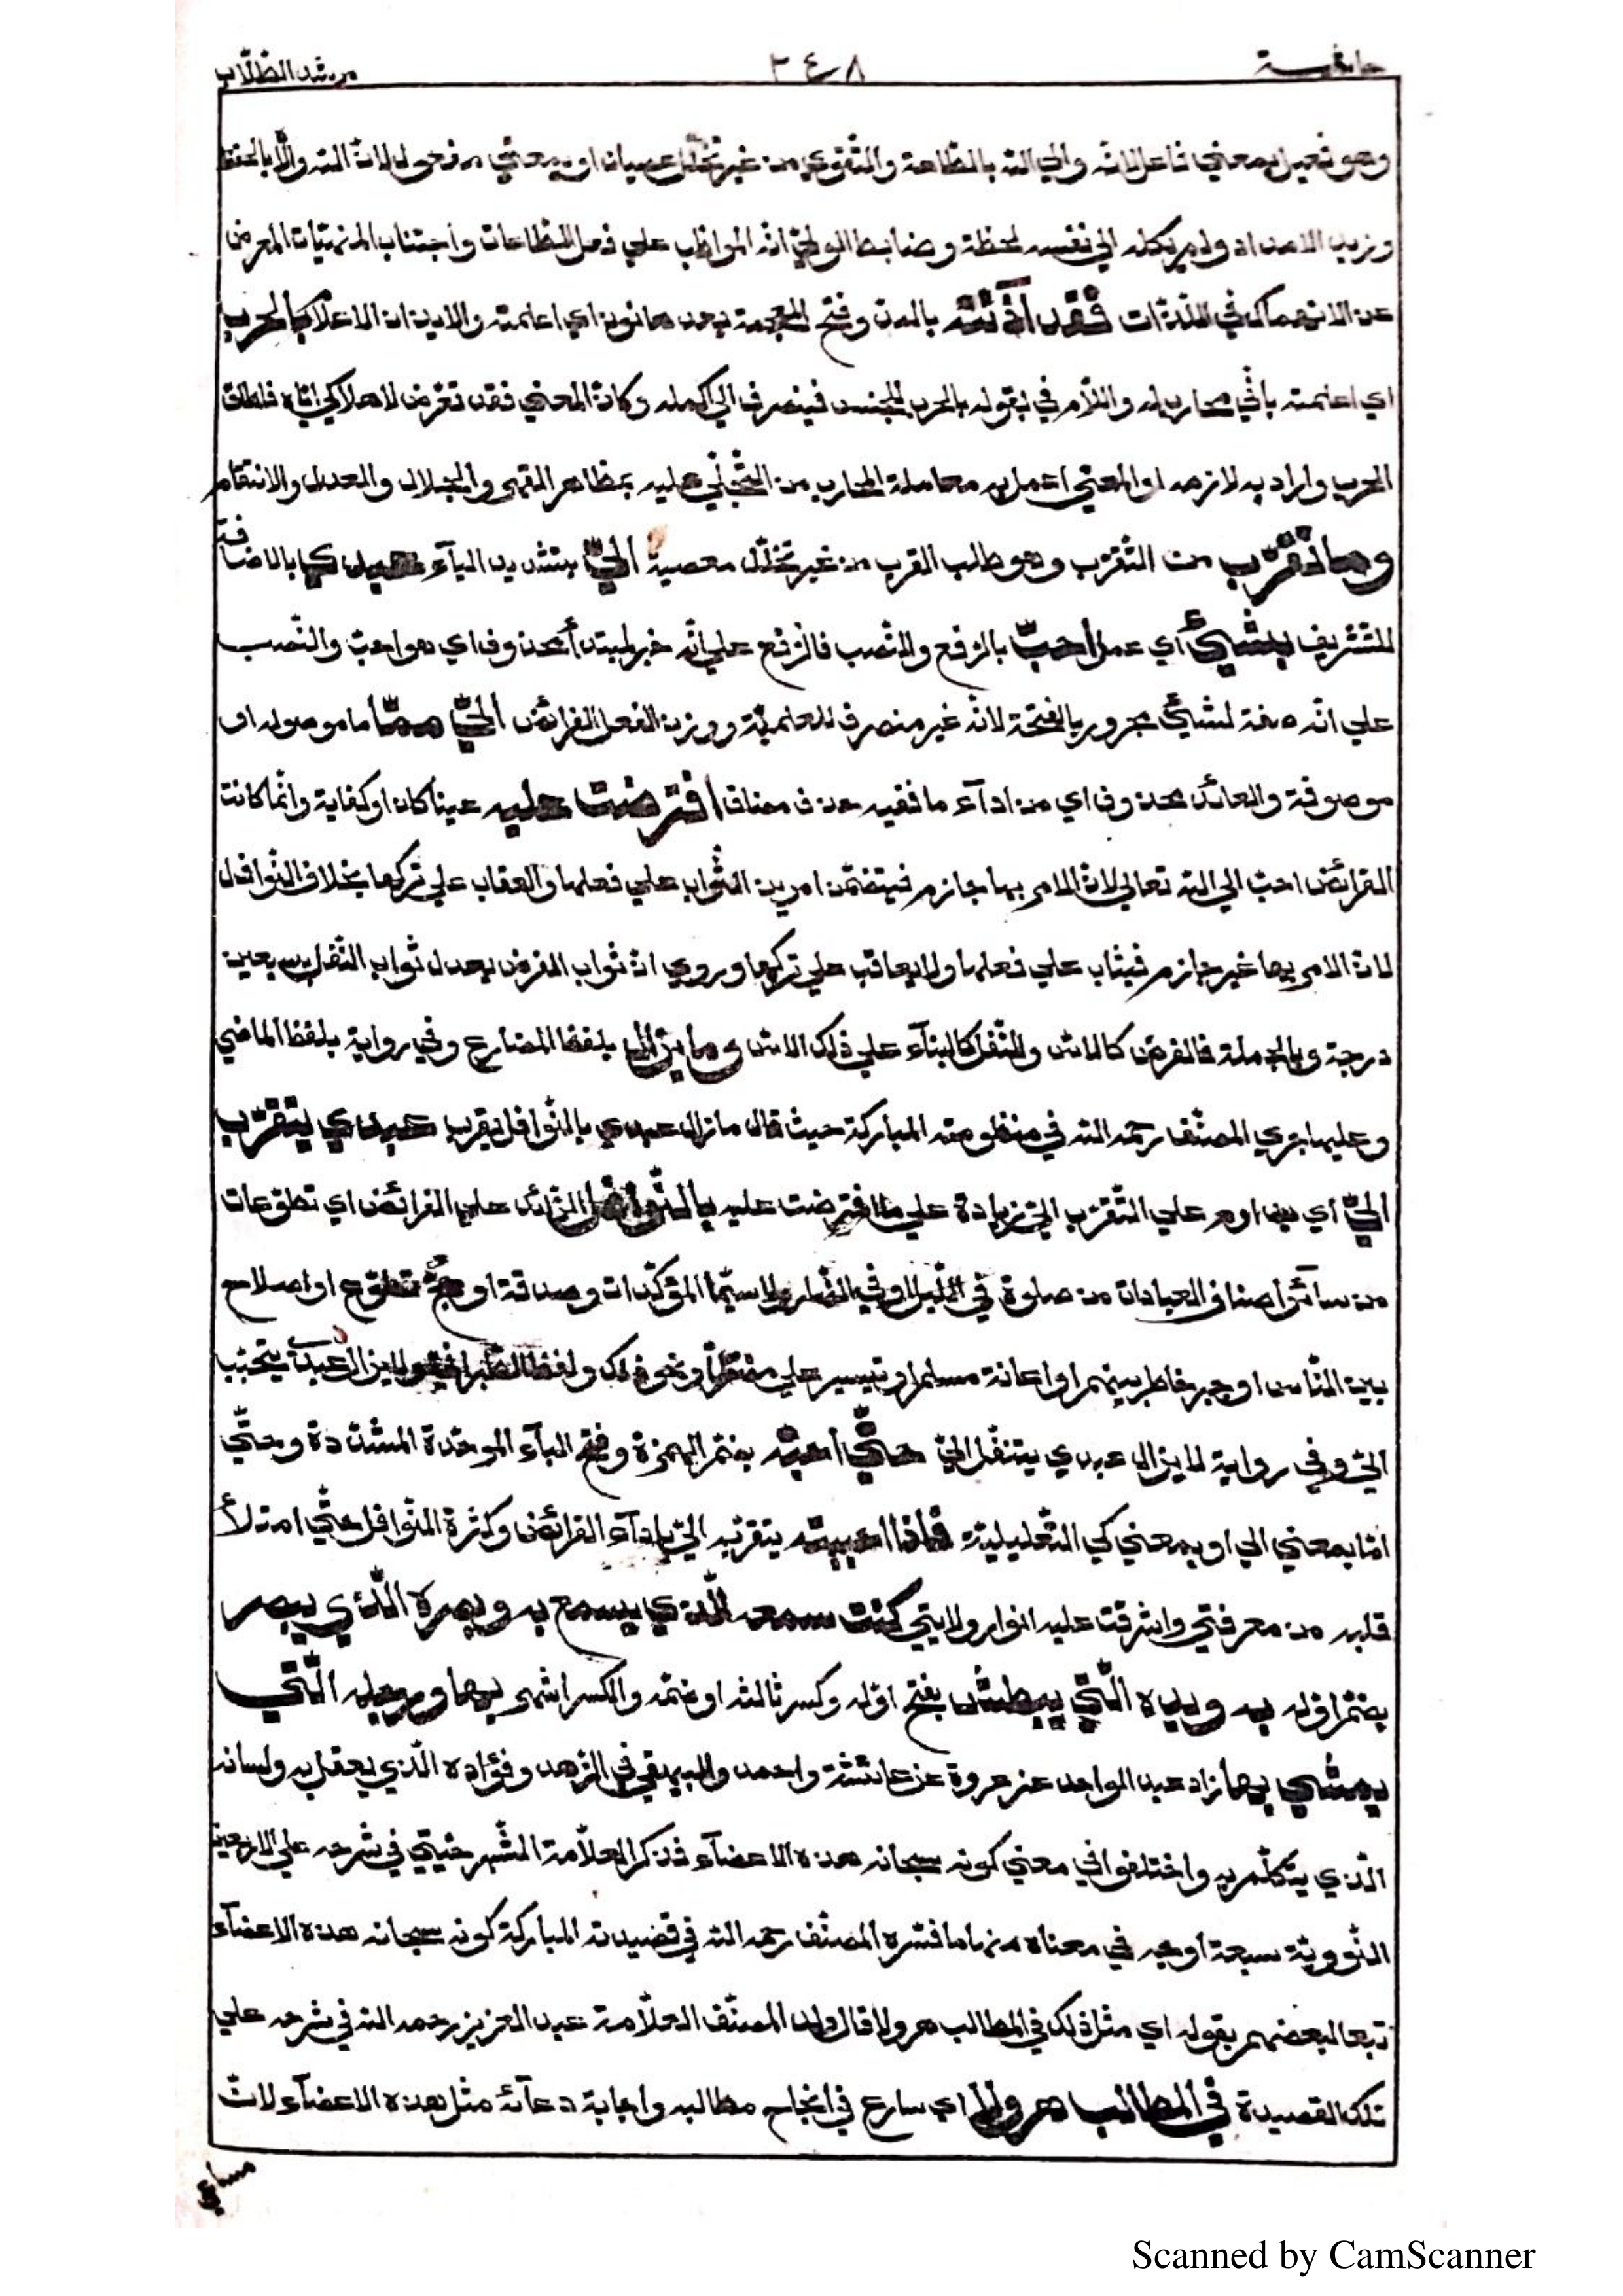 خاتمة ٢٤٨ مرشد الطّلّاب
وهو فعيل بمعني فاعل لانّه والي الله بالطّاعة والتّقوي من غير تخلّل عصيان او بمعني مفعول لانّ الله والاه بالحفظ
وزيد الامداد ولم يكله الي نفسه لحظة وضابط الوليّ انّه المواظب علي فعل الطّاعات واجتناب المنهيّات المعرض
عن الانهماك في اللّذّات فقد آذنته بالمدّ وفتح المعجمة بعدها نون اي اعلمته والايذان الاعلام بالحرب
اي اعلمته بانّي محارب له واللّام في بقوله بالحرب للجنس فينصرف الي اكمله وكانّ المعني فقد تعرّض لاهلاكي ايّاه فاطلق
الحرب واراد به لازمه او المعني اعمل به معاملة المحارب من التّجلّي عليه بمظاهر القهر والجلال والعدل والانتقام
وما تقرّب من التّقرّب وهو طلب القرب من غير تخلّل معصية اليّ بتشديد اليآء عبدي بالاضافة
للتّشريف بشيئ أي عمل أحبّ بالرّفع والنّصب فالرّفع علي انّه خبر لمبتدأ محذوف اي هو احبّ والنّصب
علي انّه صفة لشيئ مجرور بالفتحة لانّه غير منصرف للعلميّة ووزن الفعل الفرائض اليّ ممّا ما موصوله او
موصوفة والعائد محذوف اي من ادآء ما ففيه حذف مضاف افترضت عليه عينا كان او كفاية وانّما كانت
الفرائض احبّ الي الله تعالي لانّ الامر بها جازم فيتضمّن امرين الثّواب علي فعلها والعقاب علي تركها بخلاف النّوافل
لانّ الامر بها غير جازم فيثاب علي فعلها ولا يعاقب علي تركها وروي انّ ثواب الفرض يعدل ثواب النّفل بسبعين
درجة وبالجملة فالفرض كالاسّ والنّفل كالبنآء علي ذلك الاسّ وما يزال بلفظ المضارع وفي رواية بلفظ الماضي
وعليها جري المصنّف رحمه الله في منظومته المباركة حيث قال ما زال عبدي بالنّوافل يقرب عبدي يتقرّب
اليّ أي يداوم علي التّقرّب اليّ زيادة علي ما افترضت عليه بالنّوافل الزّائد علي الفرائض اي تطوّعات
من سآئر اصناف العبادات من صلوة في اللّيل او في النّهار ولا سيّما المؤكّدات وصدقة او حجّ تطوّع او اصلاح
بين النّاس او جبر خاطر يتيم او اعانة مسلم او تيسير علي ونحو ذلك ولفظ ولا يزال عبدي يتحبّب
اليّ وفي رواية لا يزال عبدي يتنفّل اليّ حتّي أحبّه بضمّ الهمزة وفتح البآء الموحّدة المشدّدة وحتّي
امّا بمعني الي او بمعني كي التّعليليّة فاذا احببته بتقرّبه اليّ بادآء الفرائض وكثرة النّوافل حتّي امتلأ
قلبه من معرفتي واشرقت عليه انوار ولايتي كنت سمعه الّذي يسمع به وبصره الّذي يبصر
بضمّ اوّله به ويده الّتي يبطش بفتح اوّله وكسر ثالثه او ضمّه والكسر اشهر بها ورجله الّتي
يمشي بها زاد عبد الواحد عن عروة عن عائشة واحمد والبيهقي في الزّهد وفؤاده الّذي يعقل به ولسانه
الّذي يتكلّم به واختلفوا في معني كونه سبحانه هذه الاعضآء فذكر العلّامة الشّبرخيتي في شرحه علي الاربعين
النّوويّة سبعة أوجه في معناه منها ما فسّره المصنّف رحمه الله في قصيدته المباركة كونه سبحانه هذه الاعضآء
تبعا لبعضهم بقوله اي مثل ذلك في المطالب هرولا قال ولد المصنّف العلّامة عبد العزيز رحمه الله في شرحه علي
تلك القصيدة في المطالب هرولا اي سارع في انجاح مطالبه واجابة دعآئه مثل هذه الاعضآء لانّ
مساعي
Scanned by CamScanner